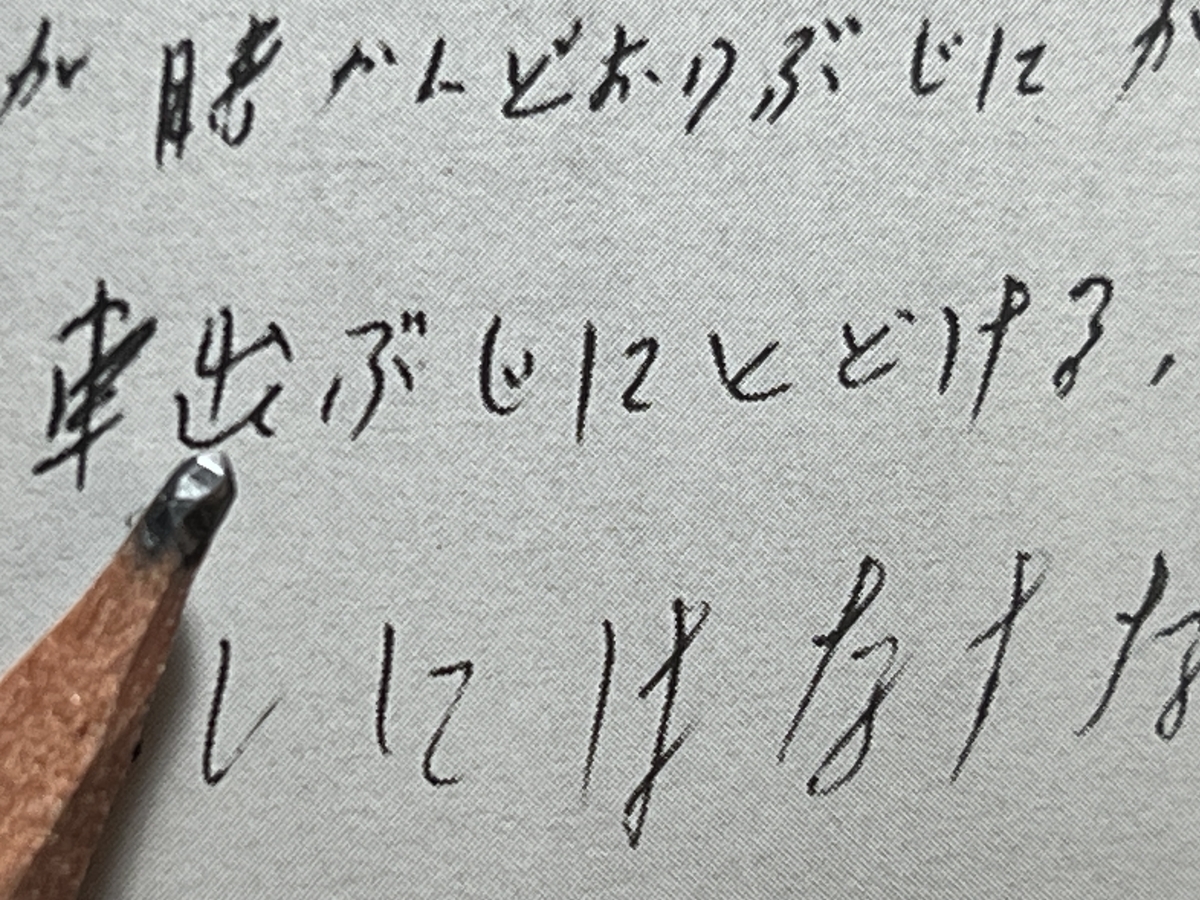 が 時かんどおりぶじに か
車出ぶじにとどける,
しにはなすな